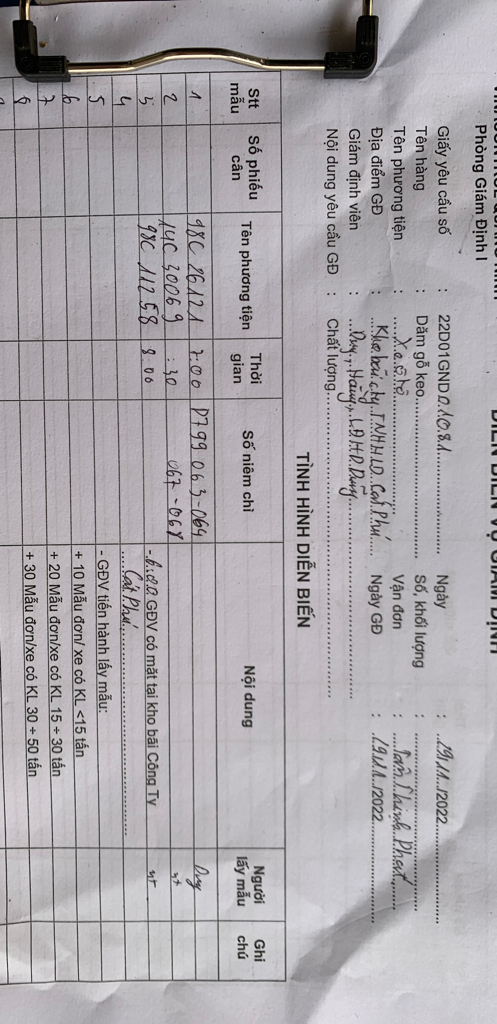 Phòng Giám Định I
Giấy yêu cầu số : 22D01GND01081 Ngày : 29/11/2022
Tên hàng : Dăm gỗ keo Số, khối lượng :
Tên phương tiện : Xe ô tô Vận đơn :
Địa điểm GĐ : Kho bãi cty TNHH LD Cát Phú Ngày GĐ : 29/11/2022
Giám định viên : Duy, Hãng, L.Đ.H.D. Dũng
Nội dung yêu cầu GĐ : Chất lượng
TÌNH HÌNH DIỄN BIẾN
Stt mẫu Số phiếu cân Tên phương tiện Thời gian Số niêm chì Nội dung Người lấy mẫu Ghi chú
1 98C 26121 7:00 D799 063-064 Duy
2 14C 30069 :30 067-068 nt
3 98C 11258 8:00 - GĐV có mặt tại kho bãi Công Ty nt
4 Cát Phú
5 - GĐV tiến hành lấy mẫu:
6 + 10 Mẫu đơn/ xe có KL <15 tấn
7 + 20 Mẫu đơn/xe có KL 15 ÷ 30 tấn
8 + 30 Mẫu đơn/xe có KL 30 ÷ 50 tấn